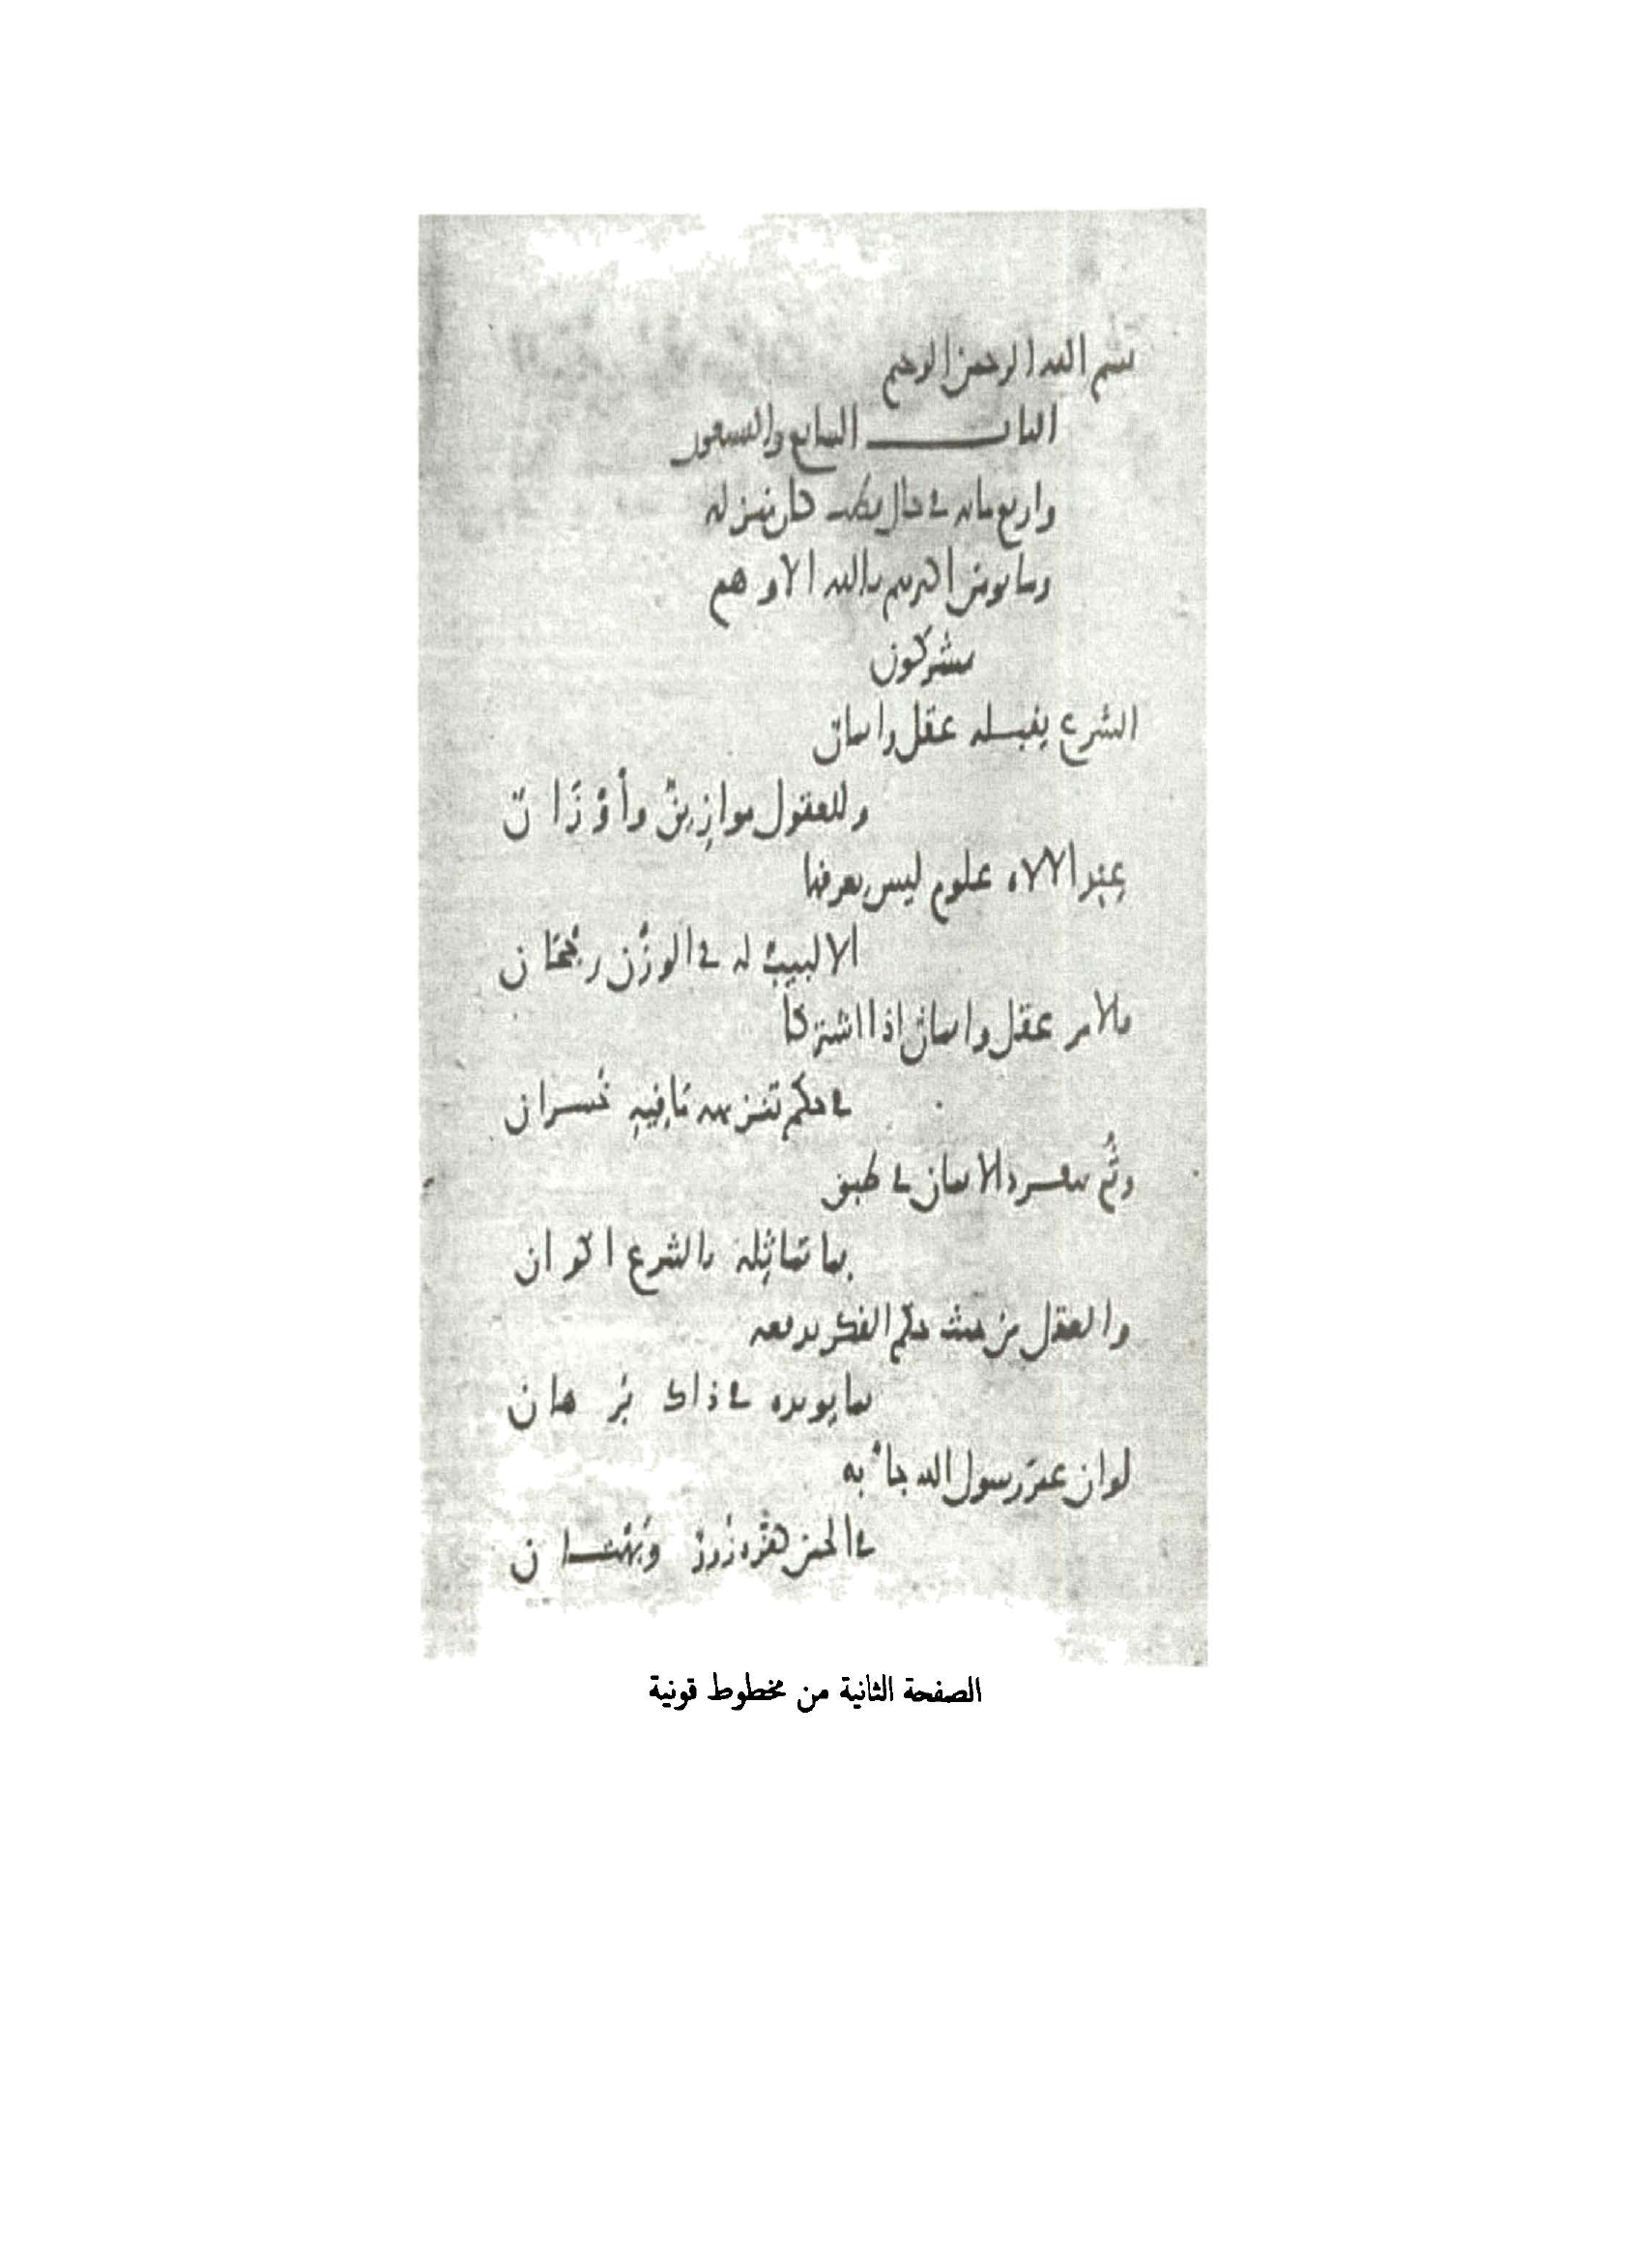 بسم الله الرحمن الرحيم
الباب السابع والتسعون
واربع مائه في حال قطب كان منزله
وما يومن اكثرهم بالله الا وهم
مشركون
الشرع يقبله عقل وايمان
وللعقول موازِينٌ وأَوْزَانٌ
عِنْدِ الالاه علوم ليس يعرفها
الا لبيبٌ له في الوزْن رجْحَان
فالامر عقل وايمانٌ اذا اشتركا
في حكم تنزيهه مَا فِيهِ خُسران
وثُمَّ ينفرد الايمان في طبق
بما تماثِله بالشرع اكوان
والعقل من حيث حكم الفكر يدفعه
بما يويده في ذاك بُرهان
لو ان غير رسول الله جاءَ به
في الحين كفّره زُورٌ وبُهْتان
الصفحة الثانية من مخطوط قونية